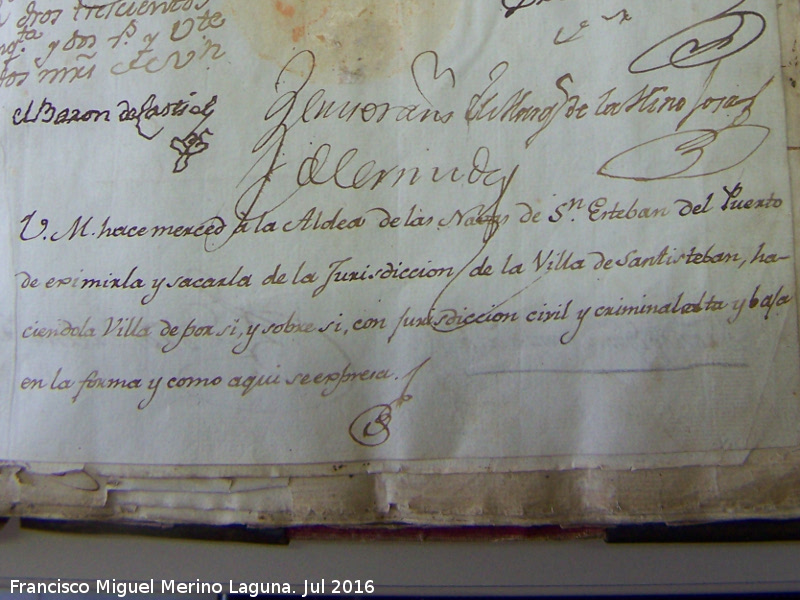 dros trescientos
y dos rs. y Vte
dos mrs de Vn
el Baron de
de la Hinojosa
V. M. hace merced à la Aldea de las Navas de Sn. Esteban del Puerto
de eximirla y sacarla de la Jurisdiccion de la Villa de Santisteban, ha-
ciendola Villa de por si, y sobre si, con jurisdiccion civil y criminal alta y baja
en la forma y como aqui se expresa.
Francisco Miguel Merino Laguna. Jul 2016